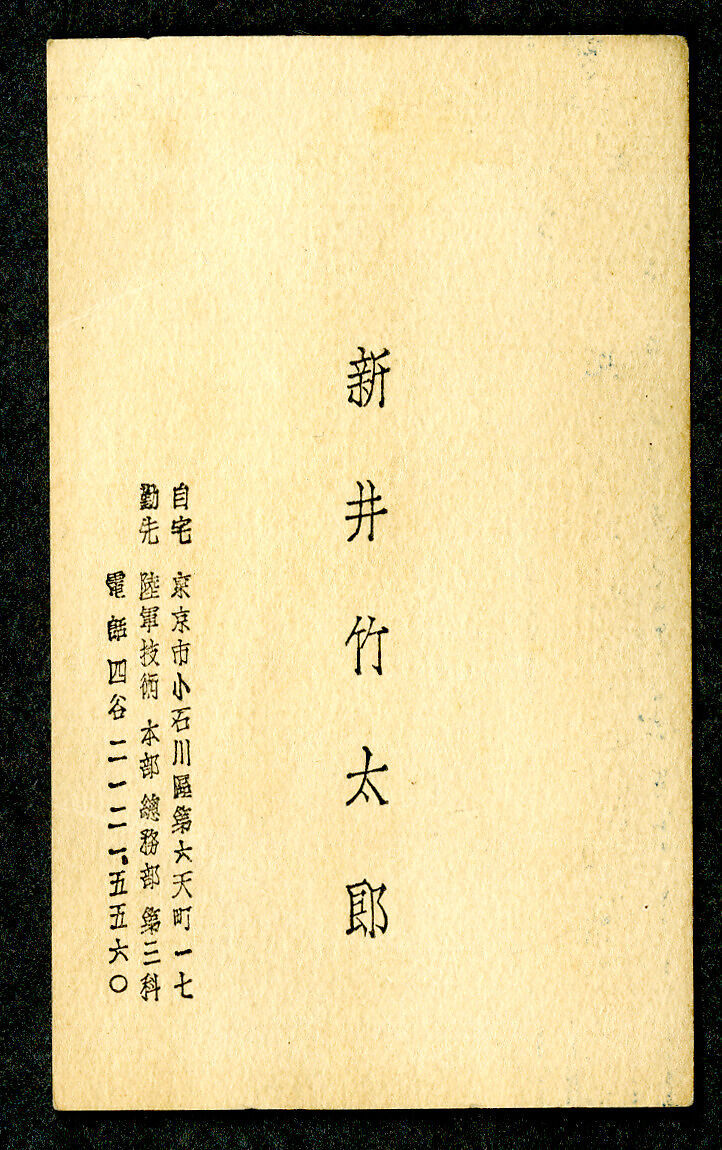 新井竹太郎
自宅 東京市小石川區第六天町一七
勤先 陸軍技術本部 總務部 第三科
電話 四谷 二一二一、五五六〇